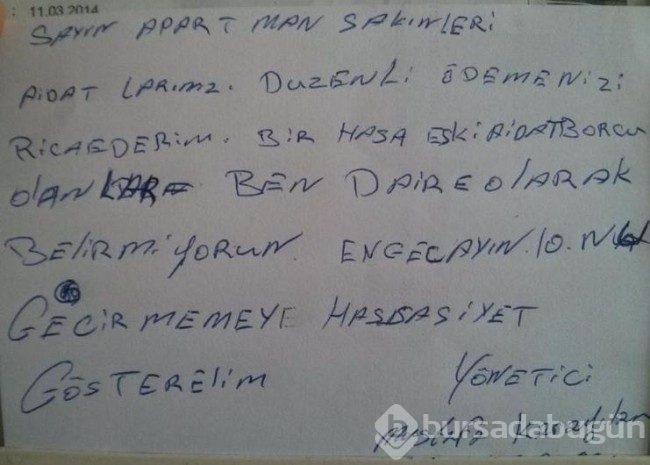 : 11.03.2014
SAYIN APARTMAN SAKINLERİ
AİDATLARIMZ. DUZENLİ ÖDEMENİZİ
RİCAEDERİM. BİR HASA ESKİ AİDATBORCU
OLAN BEN DAİREOLARAK
BELİRMİYORUN. ENGECAYIN.10.N
GEÇİRMEMEYE HASSASİYET
GÖSTERELİM YÖNETİCİ
bursadabugün